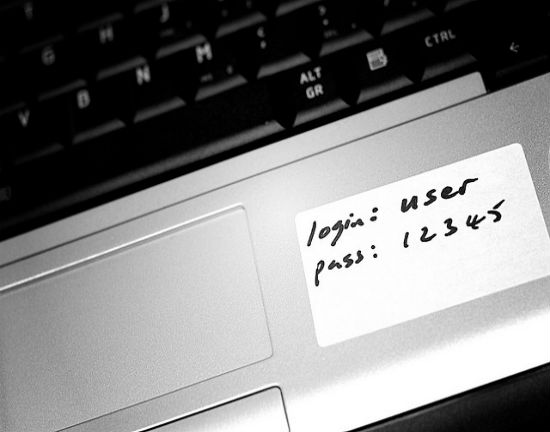 F G H J
V B N M ;
ALT GR
CTRL
←
login: user
pass: 12345